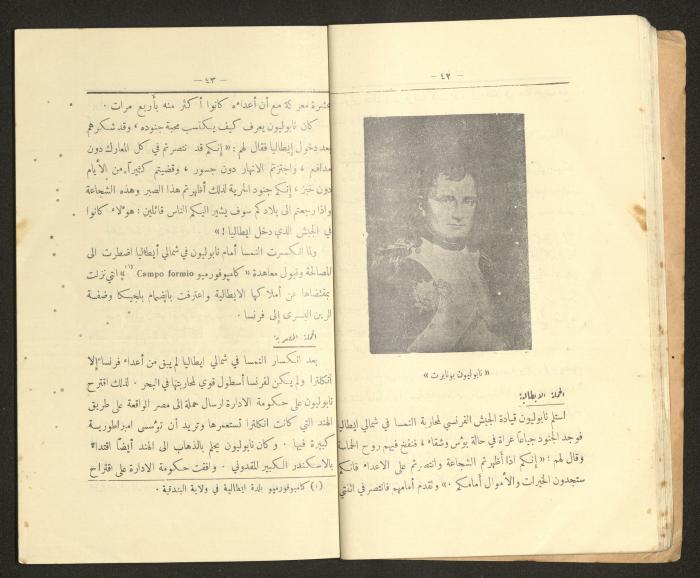 — ٤٢ —
« نابوليون بونابرت »
الحملة الايطالية
استلم نابوليون قيادة الجيش الفرنسي لمحاربة النمسا في شمالي ايطاليا
فوجد الجنود جياعاً عراة في حالة بؤس وشقاء ، فنفخ فيهم روح الحماسة
وقال لهم : « إنكم اذا أظهرتم الشجاعة وانتصرتم على الاعداء فانكم
ستجدون الخيرات والأموال أمامكم . » وتقدم أمامهم فانتصر في اثنتي
— ٤٣ —
عشرة معركة مع أن أعداءه كانوا أكثر منه بأربع مرات .
كان نابوليون يعرف كيف يكتسب محبة جنوده ، وقد شكرهم
بعد دخول إيطاليا فقال لهم : « إنكم قد انتصرتم في كل المعارك دون
مدافع ، واجتزتم الانهار دون جسور ، وقضيتم كثيراً من الأيام
دون خبز ، إنكم جنود الحرية لذلك أظهرتم هذا الصبر وهذه الشجاعة
واذا رجعتم الى بلادكم سوف يشير اليكم الناس قائلين : هؤلاء كانوا
في الجيش الذي دخل ايطاليا ! »
ولما انكسرت النمسا أمام نابوليون في شمالي أيطاليا اضطرت الى
المصالحة وقبول معاهدة « كامبوفورميو Campo formio (١) » التي نزلت
بمقتضاها عن أملاكها الايطالية واعترفت بانضمام بلجيكا وضفة
الرين اليسرى إلى فرنسا .
الحملة المصرية
بعد انكسار النمسا في شمالي ايطاليا لم يبق من أعداء فرنسا إلا
انكلترا ولم يكن لفرنسا أسطول قوي لمحاربتها في البحر . لذلك اقترح
نابوليون على حكومة الادارة ارسال حملة إلى مصر الواقعة على طريق
الهند التي كانت انكلترا تستعمرها وتريد أن تؤسس امبراطورية
كبيرة فيها . وكان نابوليون يحلم بالذهاب الى الهند أيضاً اقتداءً
بالاسكندر الكبير المقدوني . وافقت حكومة الادارة على اقتراح
(١) كامبوفورميو بلدة ايطالية في ولاية البندقية .